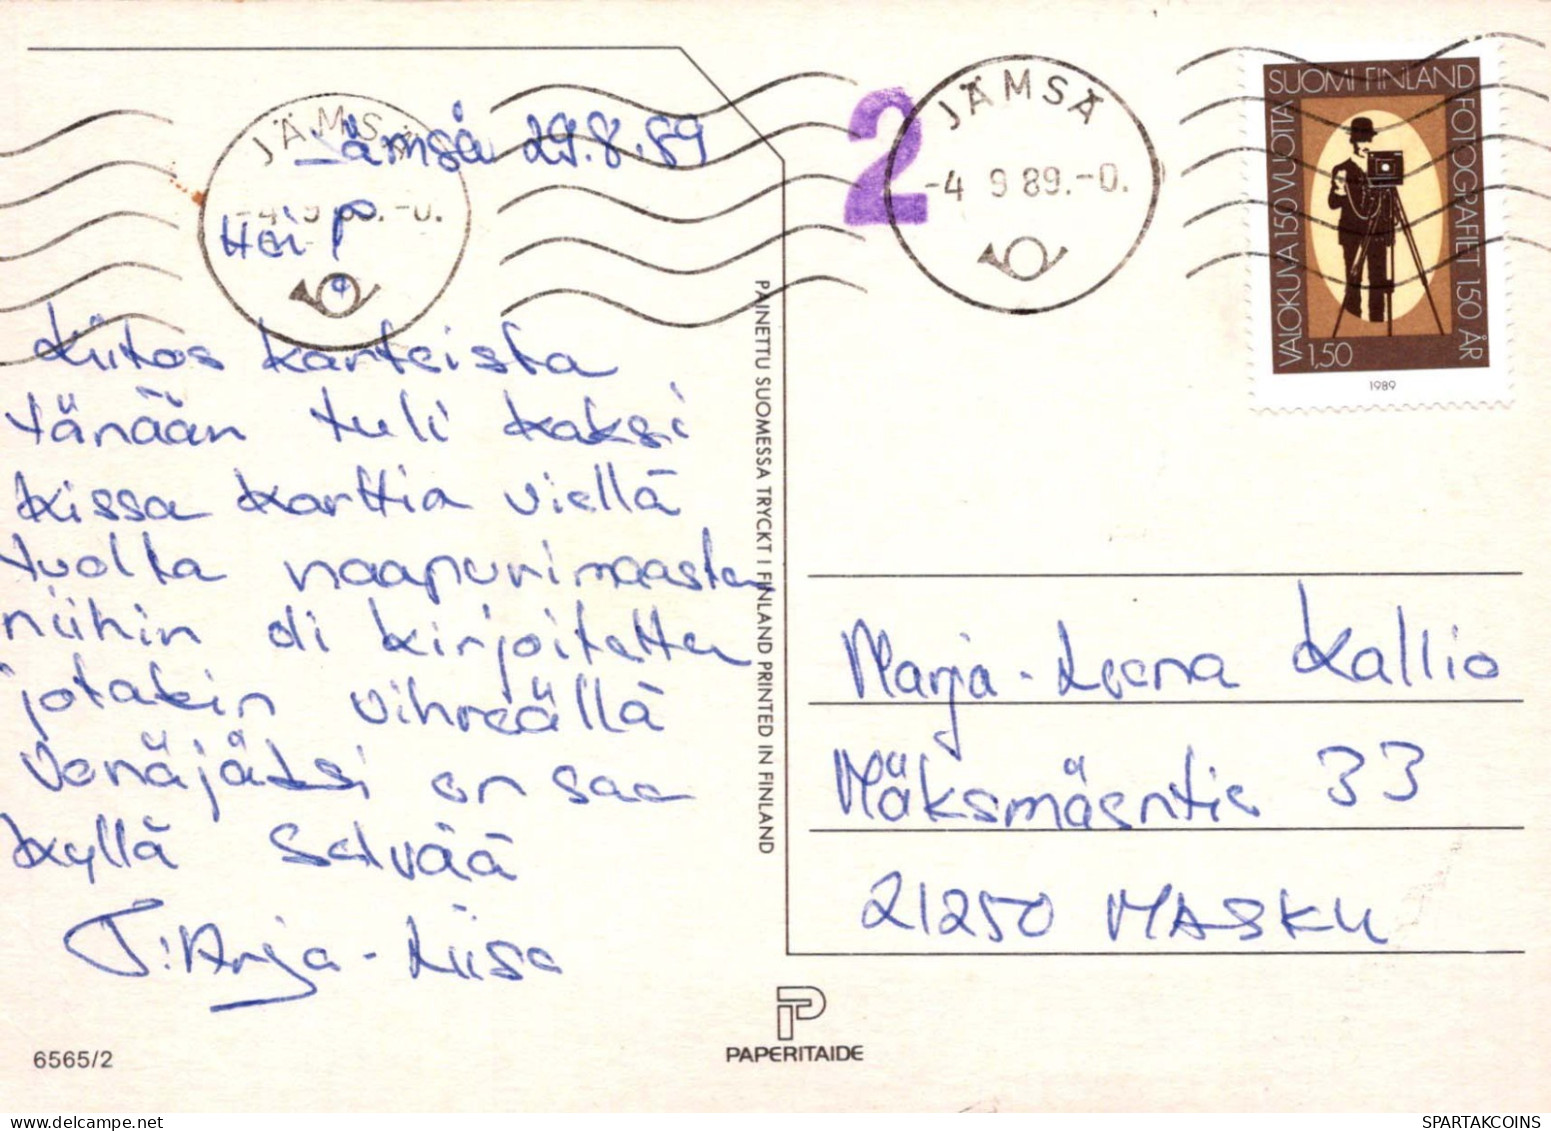 Jämsä 29.8.89
Hei!
Kiitos korteista
tänään tuli kaksi
kissa korttia viellä
tuolta naapurimaasta
niihin oli kirjoitettu
jotakin vihreällä
venäjäksi en saa
kyllä selvää
T: Arja-Liisa
6565/2
JÄMSÄ
-4 9 89.-0.
2
JÄMSÄ
-4 9 89.-0.
SUOMI FINLAND
VALOKUVA 150 VUOTTA
FOTOGRAFIET 150 ÅR
1,50
1989
PAINETTU SUOMESSA TRYCKT I FINLAND PRINTED IN FINLAND
Marja-Leena Kallio
Mäksmäentie 33
21250 MASKU
PAPERITAIDE
SPARTAKCOINS